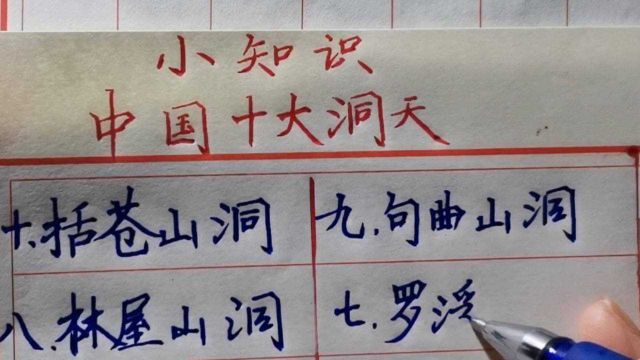 小知识
中国十大洞天
十.括苍山洞
九.句曲山洞
八.林屋山洞
七.罗浮